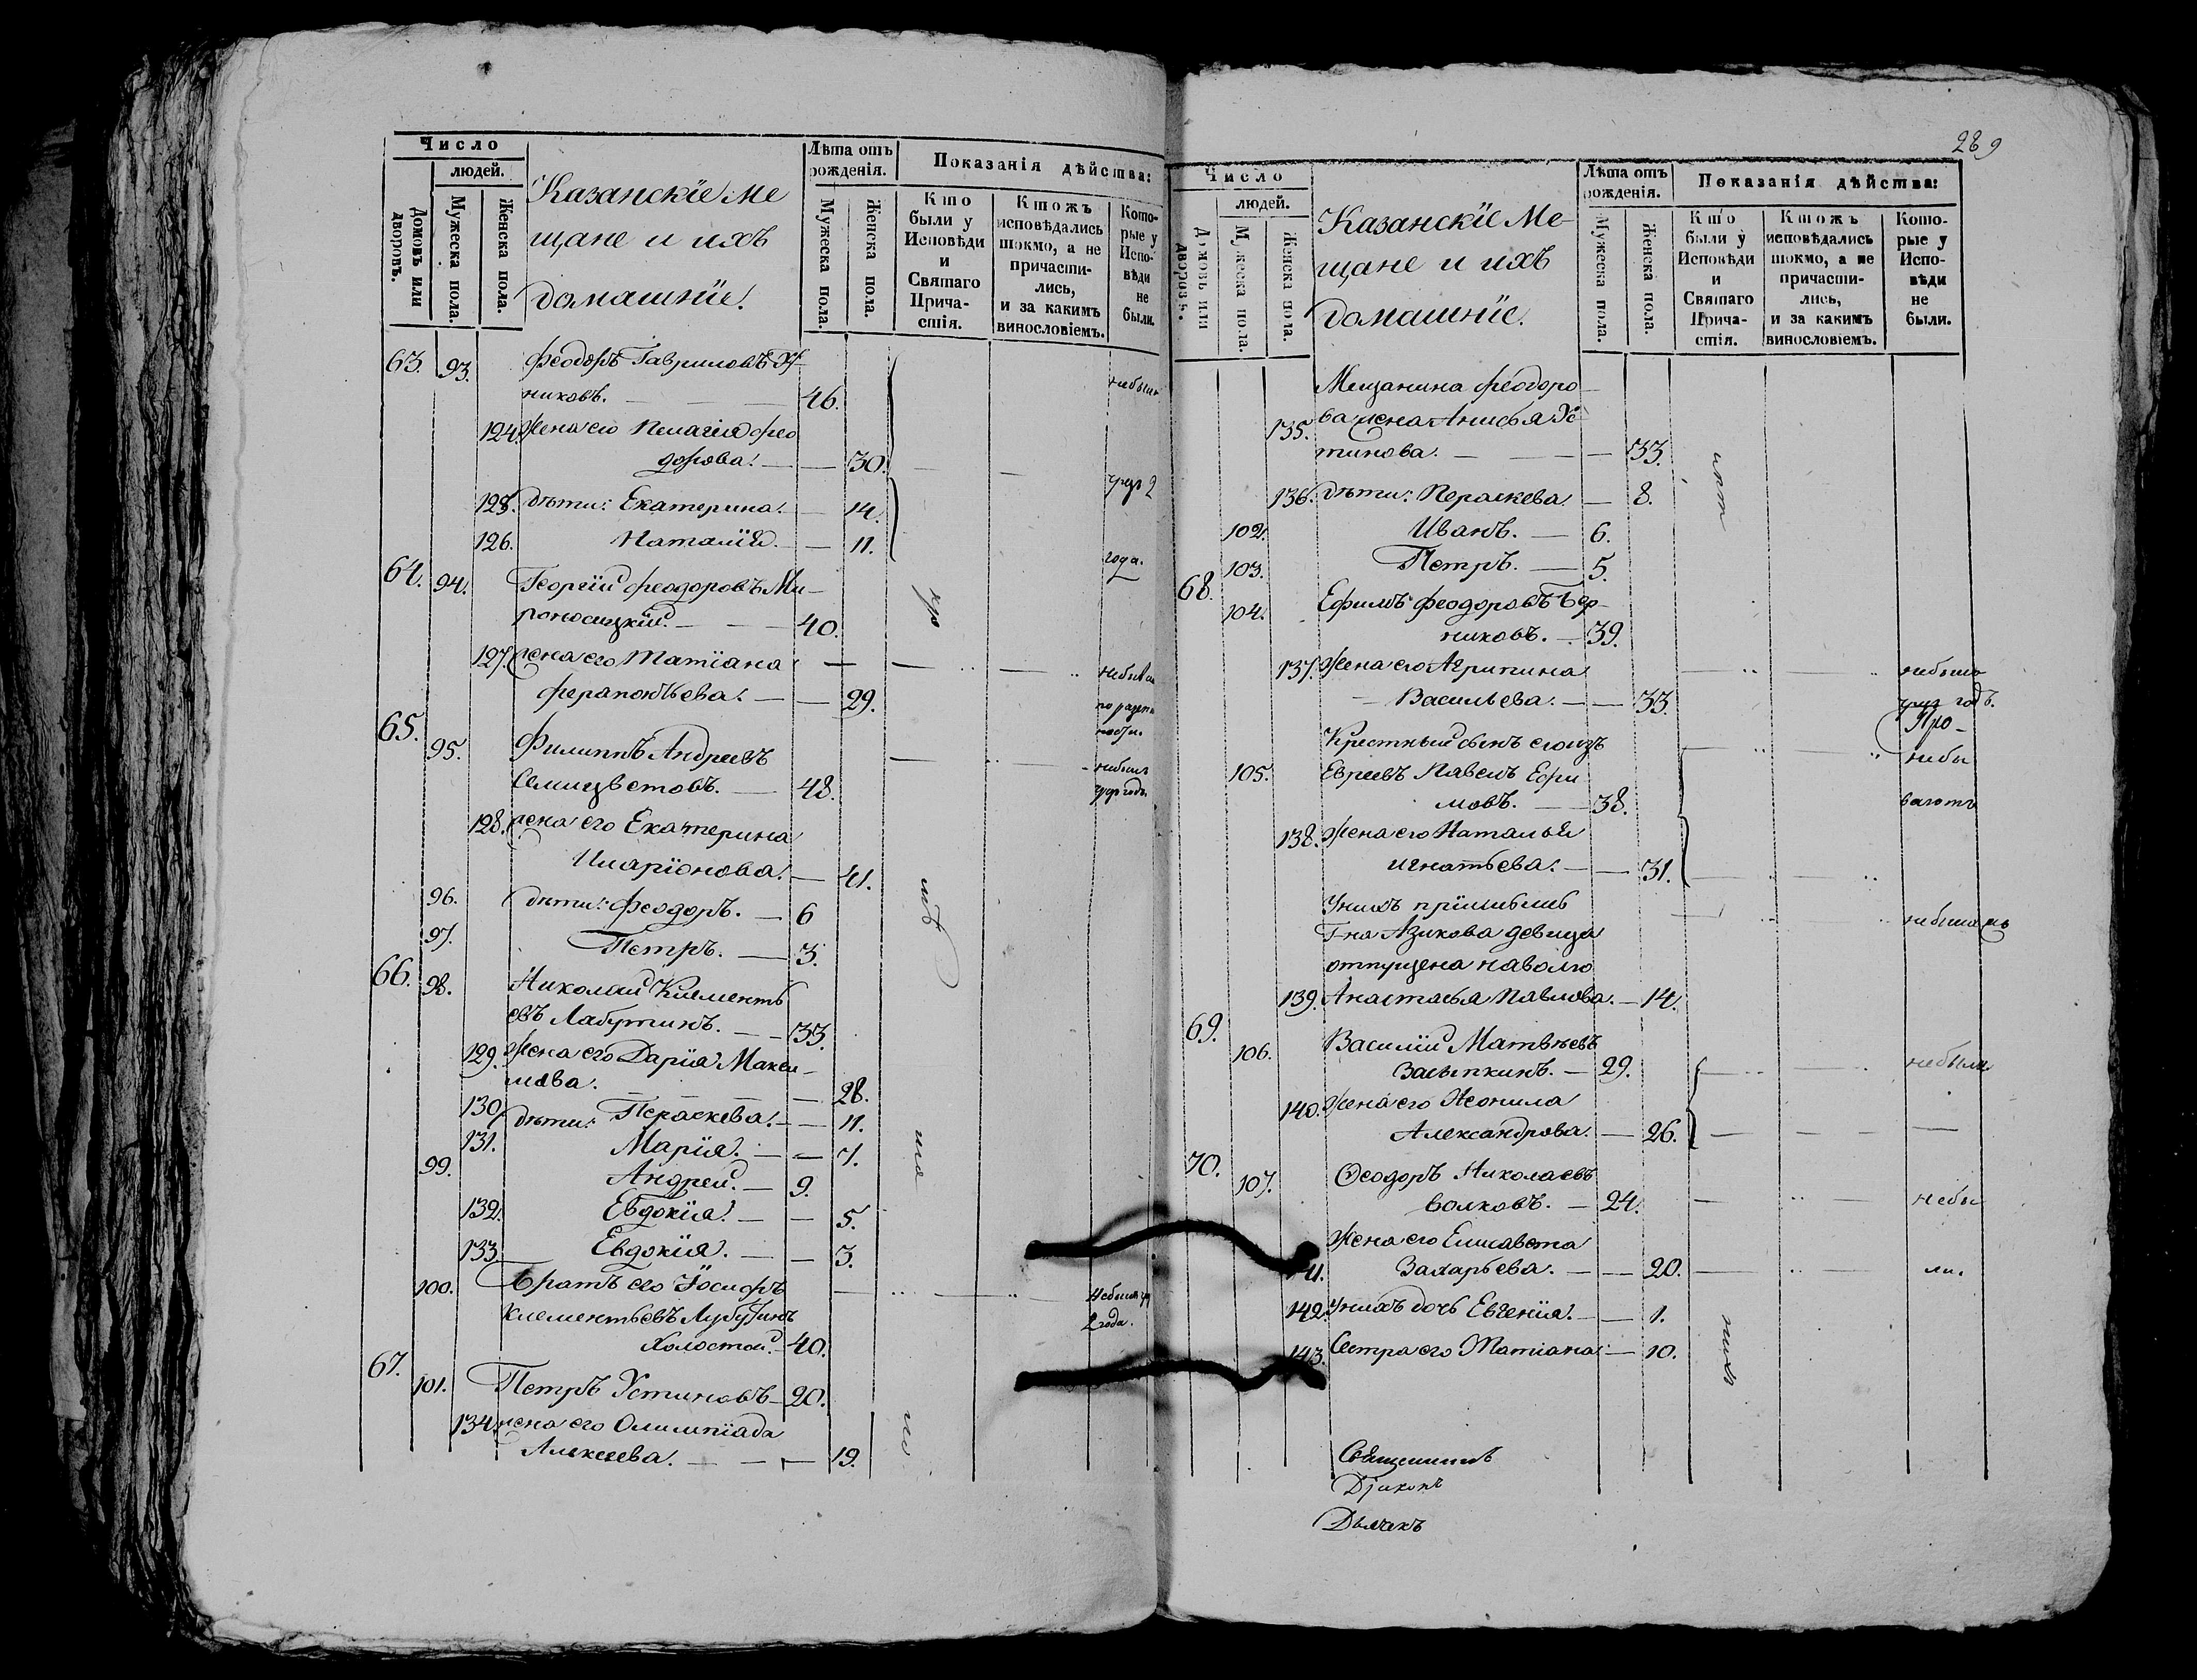 289
Число
людей.
Домовъ или дворовъ.
Мужеска пола.
Женска пола.
Казанскіе Ме
щане и ихъ
домашніе.
Лѣта отъ
рожденія.
Мужеска пола.
Женска пола.
Показанія дѣйства:
Кто
были у
Исповѣди
и
Святаго
Прича-
стія.
Ктожъ
исповѣдались
токмо, а не
причасти-
лись,
и за какимъ
винословіемъ.
Кото-
рые у
Испо-
вѣди
не
были.
63. 93. Феодоръ Гавриловъ
никовъ. 46. небыли
124. Жена его Пелагія Фео
дорова. 30.
чрез 2
125. дѣти: Екатерина. 14.
126. Наталія. 11.
года.
64. 94. Георгій Феодоровъ Ми-
роносицкій. 40.
127. жена его Татіана
Ферапонтьева. 29.
65. 95. Филиппъ Андреевъ
Семицветовъ. 48.
128. жена его Екатерина
Иларіонова. 41.
96. дѣти: Феодоръ. 6
97. Петръ. 3.
66. 98. Николай Клементь
евъ Лабутинъ. 33.
129. Жена его Дарія Макси-
мова. 28.
130. дѣти: Пераскева. 11.
131. Марія. 7.
99. Андрей. 9.
132. Евдокія. 5.
133. Евдокія. 3.
100. Братъ его Іосифъ
Клементьевъ Лубутинъ
холостой. 40.
2 года.
67. 101. Петръ Устиновъ 20.
134. жена его Олимпіада
Алексеева. 19.
Число
людей.
Домовъ или дворовъ.
Мужеска пола.
Женска пола.
Казанскіе Ме-
щане и ихъ
домашніе.
Лѣта отъ
рожденія.
Мужеска пола.
Женска пола.
Показанія дѣйства:
Кто
были у
Исповѣди
и
Святаго
Прича-
стія.
Ктожъ
исповѣдались
токмо, а не
причасти-
лись,
и за какимъ
винословіемъ.
Кото-
рые у
Испо-
вѣди
не
были.
Мещанина Феодоро-
135. ва жена Анисья Ус
тинова. 33.
136. дѣти: Пераскева 8.
102. Иванъ. 6.
103. Петръ. 5.
68. 104. Ефимъ Феодоровъ
никовъ. 39.
137. Жена его Агрипина
Васильева. 33.
годъ.
Крестный сынъ его изъ
105. Евреевъ Павелъ Ефи
мовъ. 38.
138. Жена его Наталья
игнатьева. 31.
Унихъ
Г-на Азикова девица
отпущена наволю
139. Анастасья Павлова. 14.
69. 106. Василій Матвѣевъ
Засыпкинъ. 29. небыли
140. Жена его Неонила
Александрова. 26.
70. 107. Ѳеодоръ Николаевъ
волковъ. 24. небы
Жена его Елисавета
Захарьева. 20. ли.
142. Унихъ дочь Евгенія. 1.
143. Сестра его Татіана 10.
Священникъ
Діаконъ
Дьячекъ